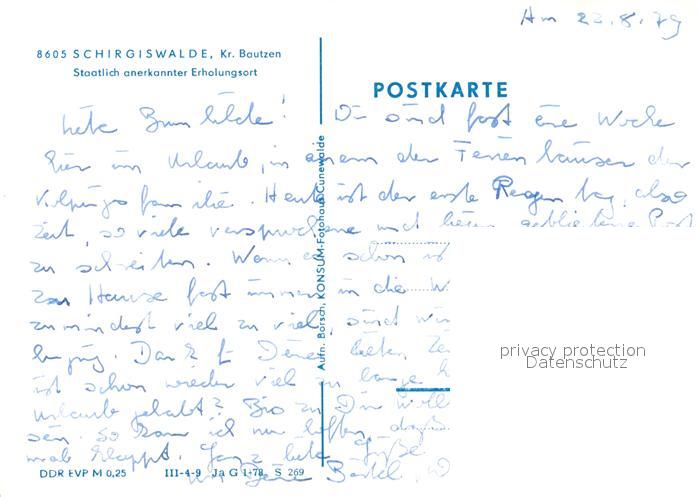 Am 22.8.79
8605 SCHIRGISWALDE, Kr. Bautzen
Staatlich anerkannter Erholungsort
POSTKARTE
Liebe Brunhilde! Wir sind fast eine Woche
hier im Urlaub, in einem der Ferienhäuser der
Kolpingsfamilie. Heute ist der erste Regentag, also
Zeit, so viele versprochene und liegen gebliebene Post
zu schreiben. Wenn es schon ist
zu Hause fast immer in die
zumindest viel zu viel, sind wir
Dank f. Deine lieben
ist schon wieder viel zu lange
Urlaub gehabt? Bist Du
sen. So kann ich nur hoffen, dass
mal klappt. Ganz liebe Grüße
von Deine Bärbel,
Aufn. Borsch, KONSUM-Fotohaus Cunewalde
privacy protection
Datenschutz
DDR EVP M 0,25 III-4-9 Ja G 1-78 S 269